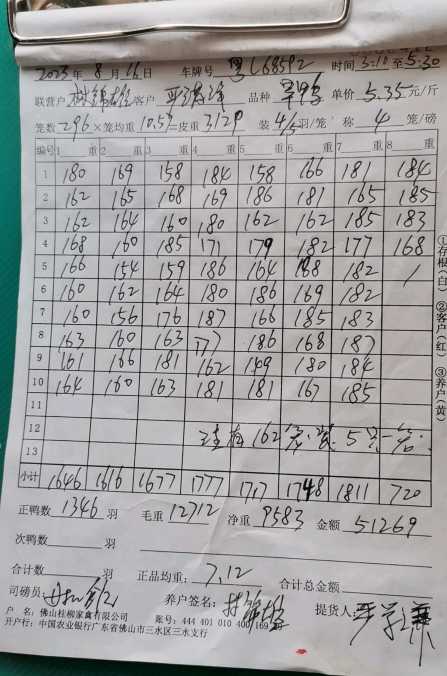 2023年 8月16日 车牌号 粤L68592 时间 3:10至5:30
联营户 客户 品种 单价 5.35元/斤
笼数 296×笼均重 10.57=皮重 3129 装 4/5羽/笼 称 4 笼/磅
编号 1 重 2 重 3 重 4 重 5 重 6 重 7 重 8 重
1 180 169 158 184 158 166 181 184
2 162 165 168 169 186 181 165 185
3 162 164 160 180 162 162 185 183
4 168 160 185 171 179 182 177 168
5 166 154 159 186 164 188 182 /
6 160 162 164 180 186 169 182
7 160 156 176 187 166 185 183
8 163 160 163 177 186 168 187
9 161 166 181 162 149 180 184
10 164 160 163 181 181 167 185
11
12 162笼 装 5只一笼
13
小计 1646 1616 1677 1777 1717 1748 1811 720
正鸭数 1346 羽 毛重 12712 净重 9583 金额 51269
次鸭数 羽
合计数 羽 正品均重: 7.12 合计总金额
司磅员: 养户签名: 提货人:
户 名: 佛山桂柳家禽有限公司 账号: 444 401 010 400 169
开户行: 中国农业银行广东省佛山市三水区三水支行
①存根(白) ②客户(红) ③养户(黄)